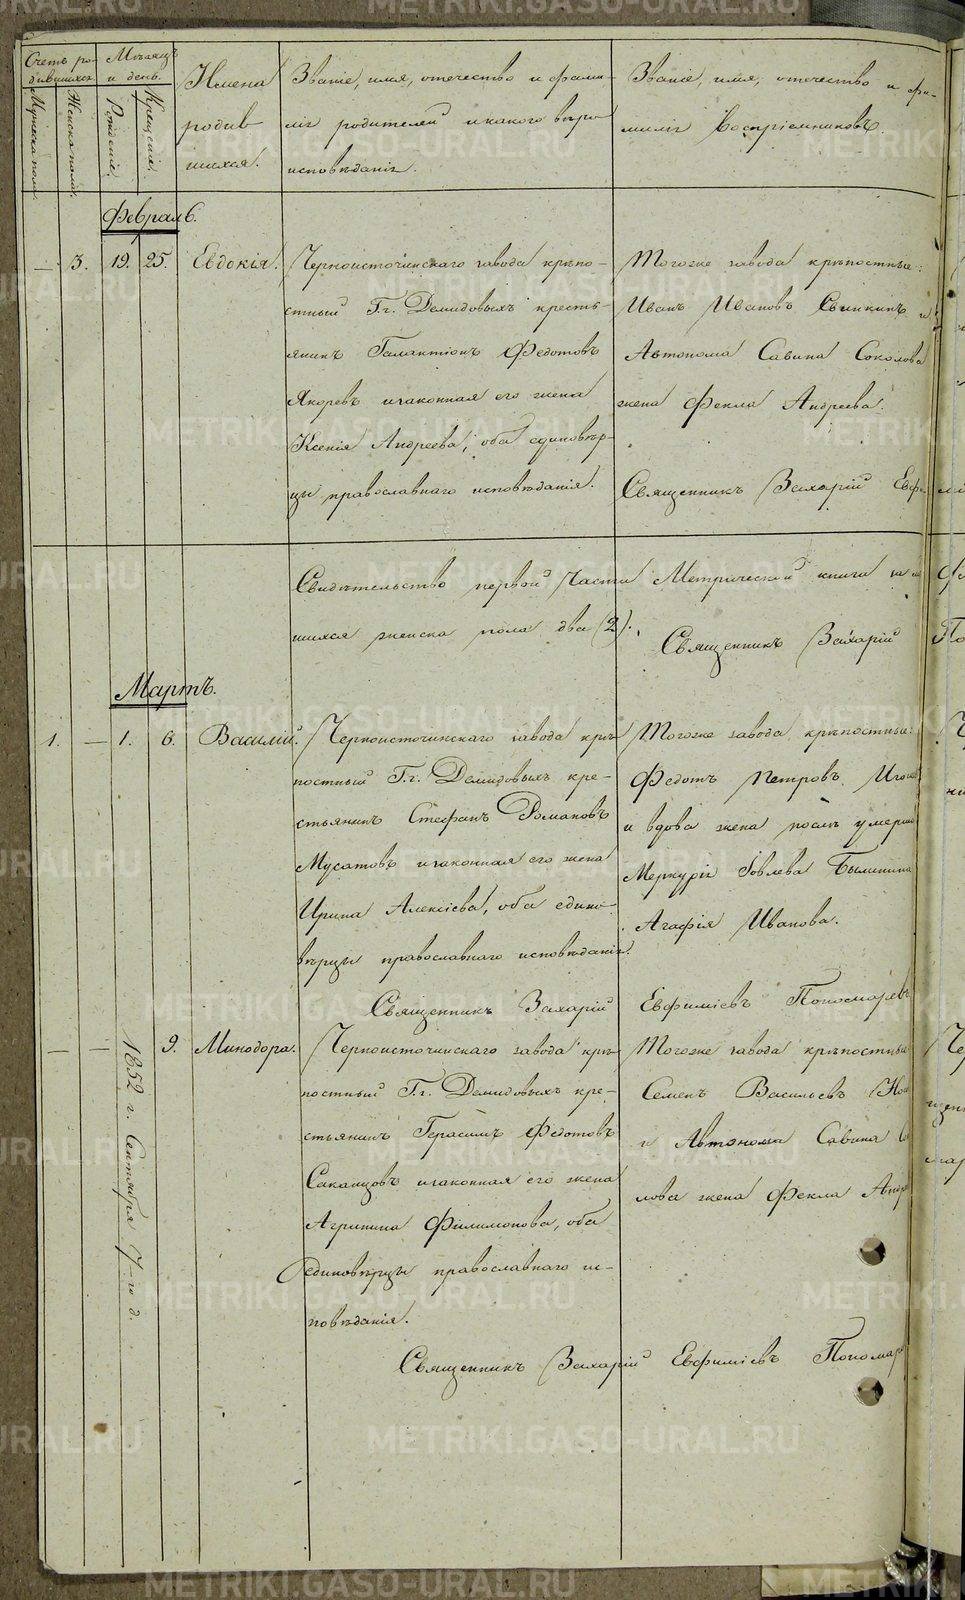 METRIKI.GASO-URAL.RU
Счетъ ро-
дившихся.
Мужеска пола.
Женска пола.
Мѣсяцъ
и день.
Рожденія.
Крещенія.
Имена
родив
шихся.
Званіе, имя, отечество и фами-
лія родителей и какого вѣро
исповѣданія.
Званіе, имя, отечество и фа-
милія воспріемниковъ.
Февраль.
— 3. 19. 25. Евдокія.
Черноисточинскаго завода крѣпо-
стный Г.г. Демидовыхъ кресть-
янинъ Галактіонъ Федотовъ
Якоревъ и законная его жена
Ксенія Андреева, оба единовѣр-
цы православнаго исповѣданія.
Тогоже завода крѣпостные:
Иванъ Ивановъ и
Автонома Савина Соколова
жена Фекла Андреева.
Священникъ Захарій
Свидѣтельство первой Части Метрической книги
шихся женска пола два (2).
Священникъ Захарій
Мартъ.
1. — 1. 6. Василій.
Черноисточинскаго завода крѣ-
постный Г.г. Демидовыхъ кре-
стьянинъ Стефанъ Романовъ
Мусатовъ и законная его жена
Ирина Алексіева, оба едино-
вѣрцы православнаго исповѣданія.
Тогоже завода крѣпостные:
Федотъ Петровъ
и вдова жена послѣ
Меркурія Іовлева
Агафія Иванова.
Священникъ Захарій Евфиміевъ Пономаревъ
— — 1852 г. Сентября 7-го д. 9. Минодора.
Черноисточинскаго завода крѣ-
постный Г.г. Демидовыхъ кре-
стьянинъ Герасимъ Федотовъ
Саканцовъ и законная его жена
Агрипина Филимонова, оба
единовѣрцы православнаго ис-
повѣданія.
Тогоже завода крѣпостные
Семенъ Васильевъ
и Автонома Савина
лова жена Фекла
Священникъ Захарій Евфиміевъ